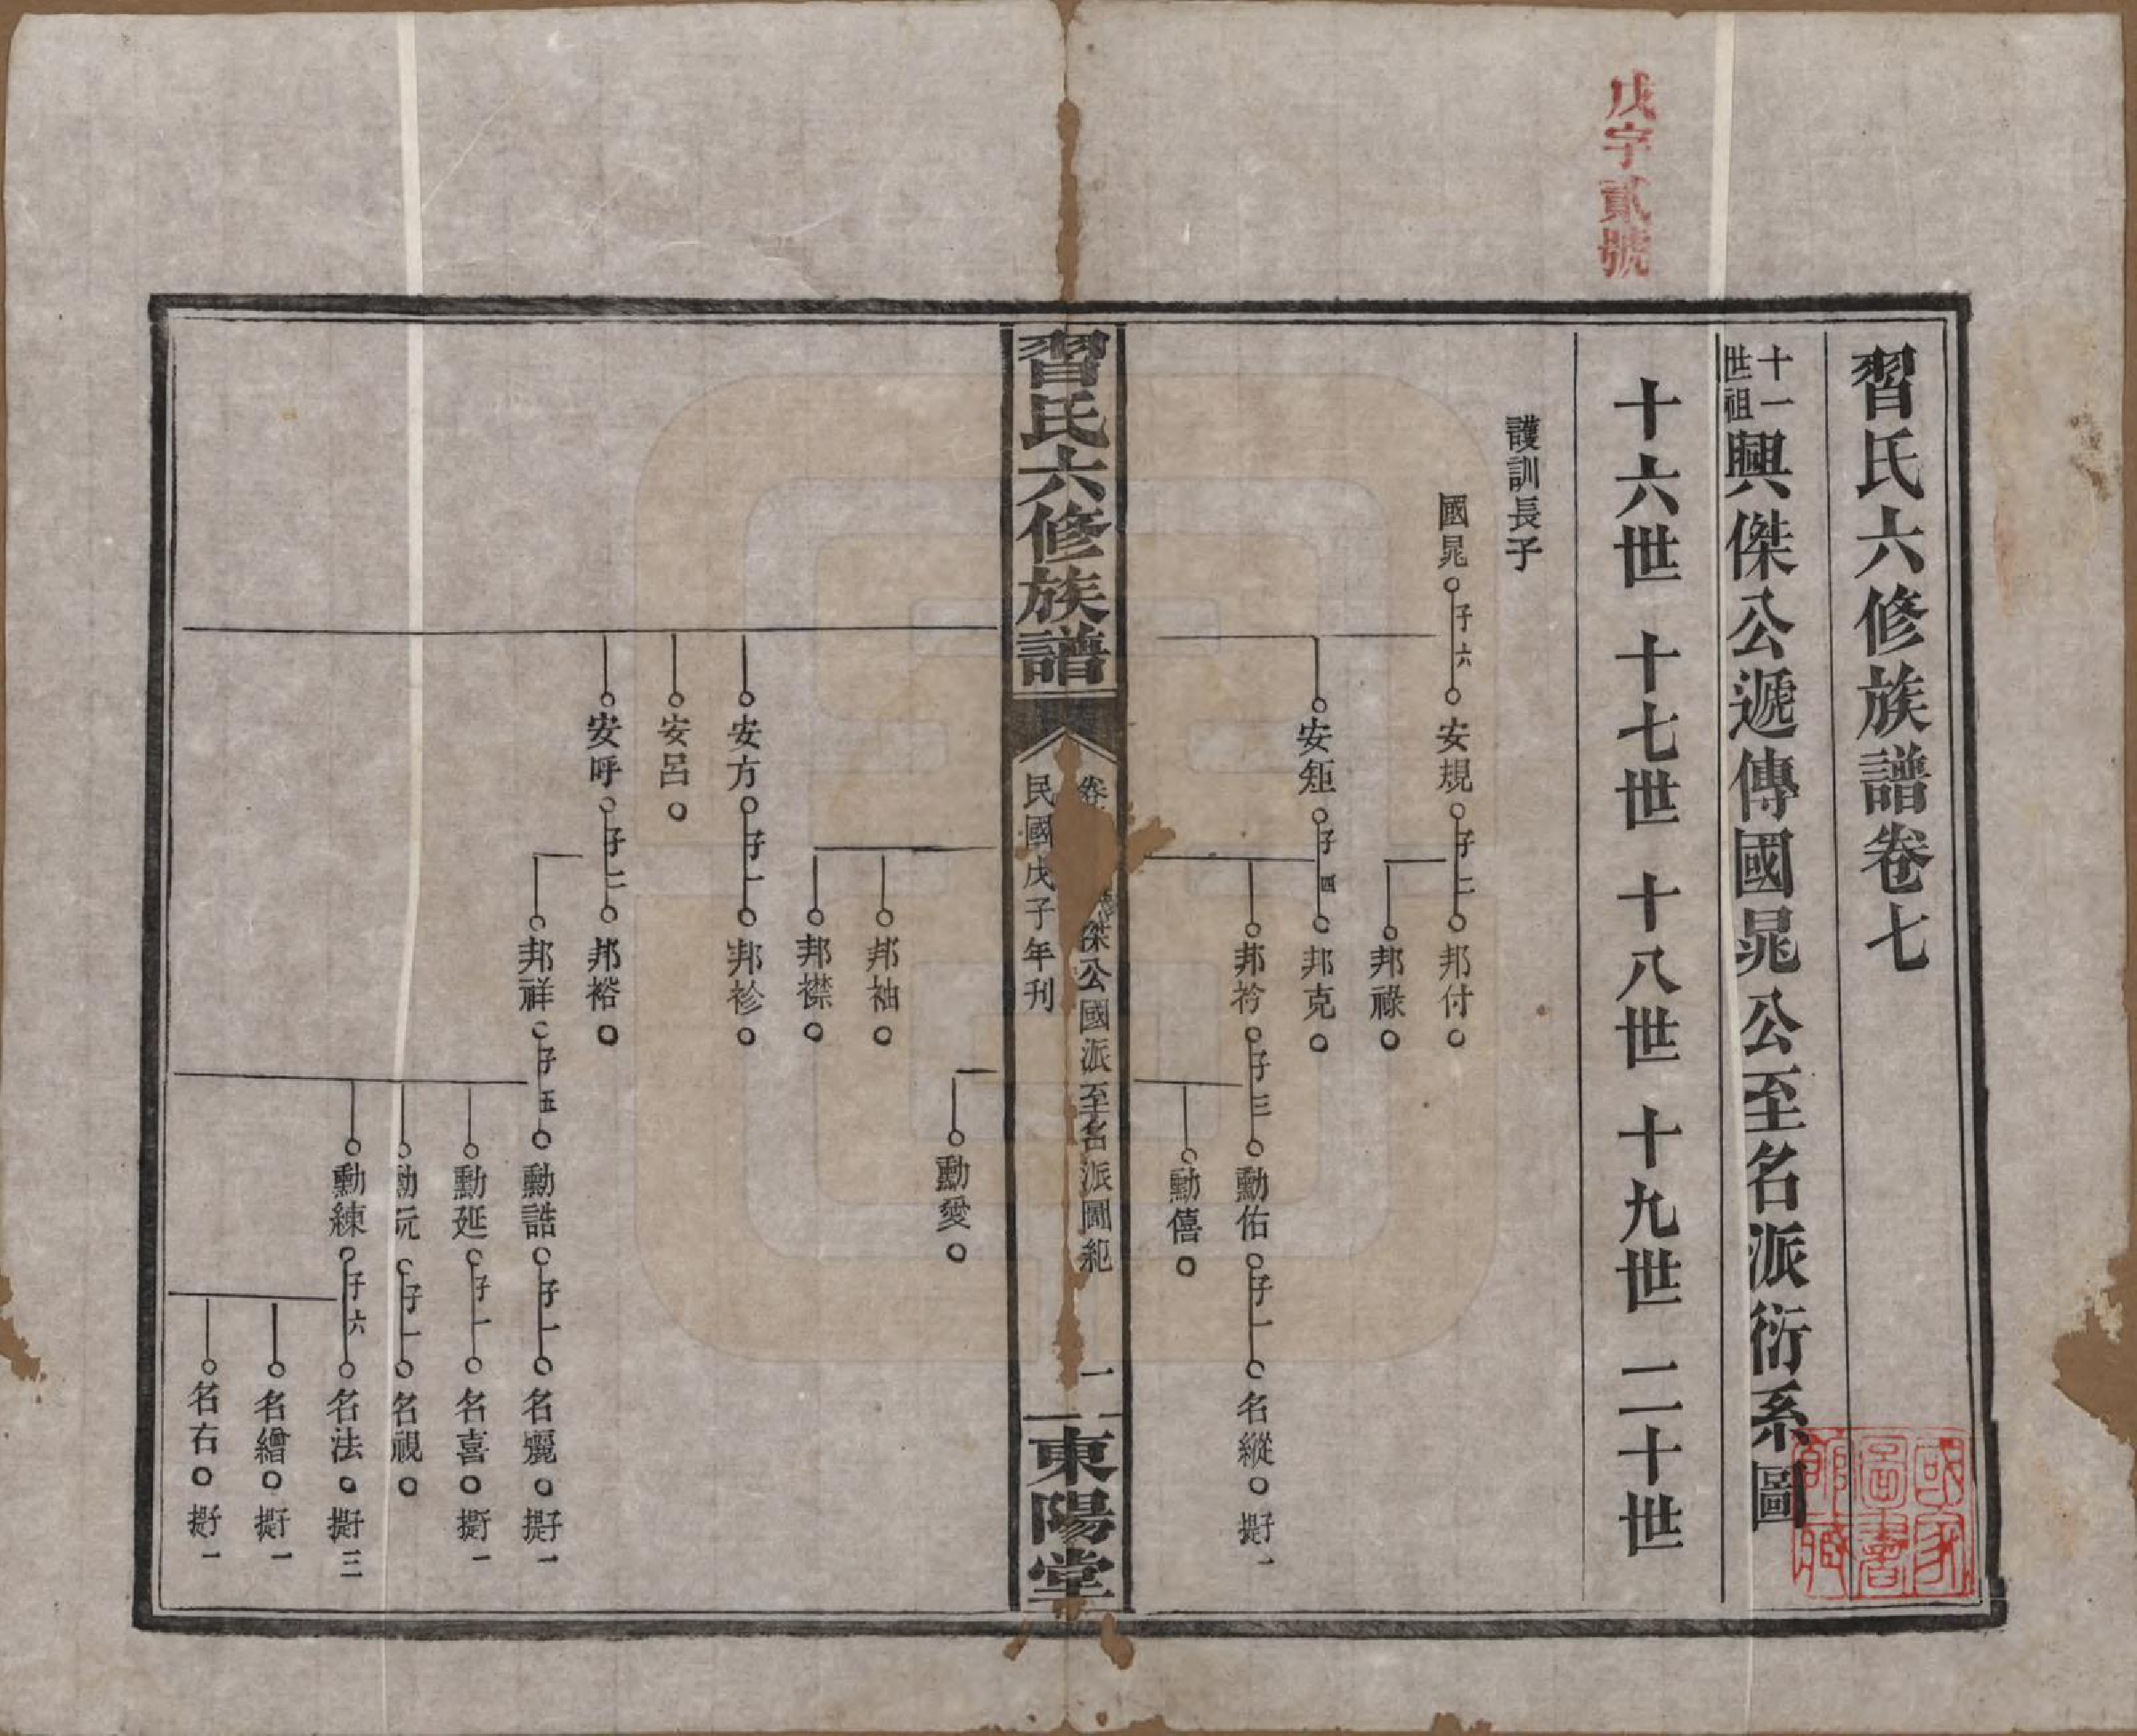 戊字貳號
習氏六修族譜卷七
十一世祖興傑公遞傳國晁公至名派衍系圖
十六世 十七世 十八世 十九世 二十世
護訓長子
國晁 子六 安規 子二 邦付
邦祿
安矩 子四 邦克
邦衿 子三 勳佑 子一 名縱 提子一
勳僖
習氏六修族譜
卷 傑公國派至名派圖紀 一
民國戊子年刊
東陽堂
勳愛
邦袖
邦襟
安方 子一 邦袗
安呂
安呼 子二 邦裕
邦祥 子五 勳誥 子一 名驪 提子一
勳延 子一 名喜 提子一
勳玩 子一 名視
勳練 子六 名法 提子三
名繒 提子一
名右 提子一
國家圖書館藏